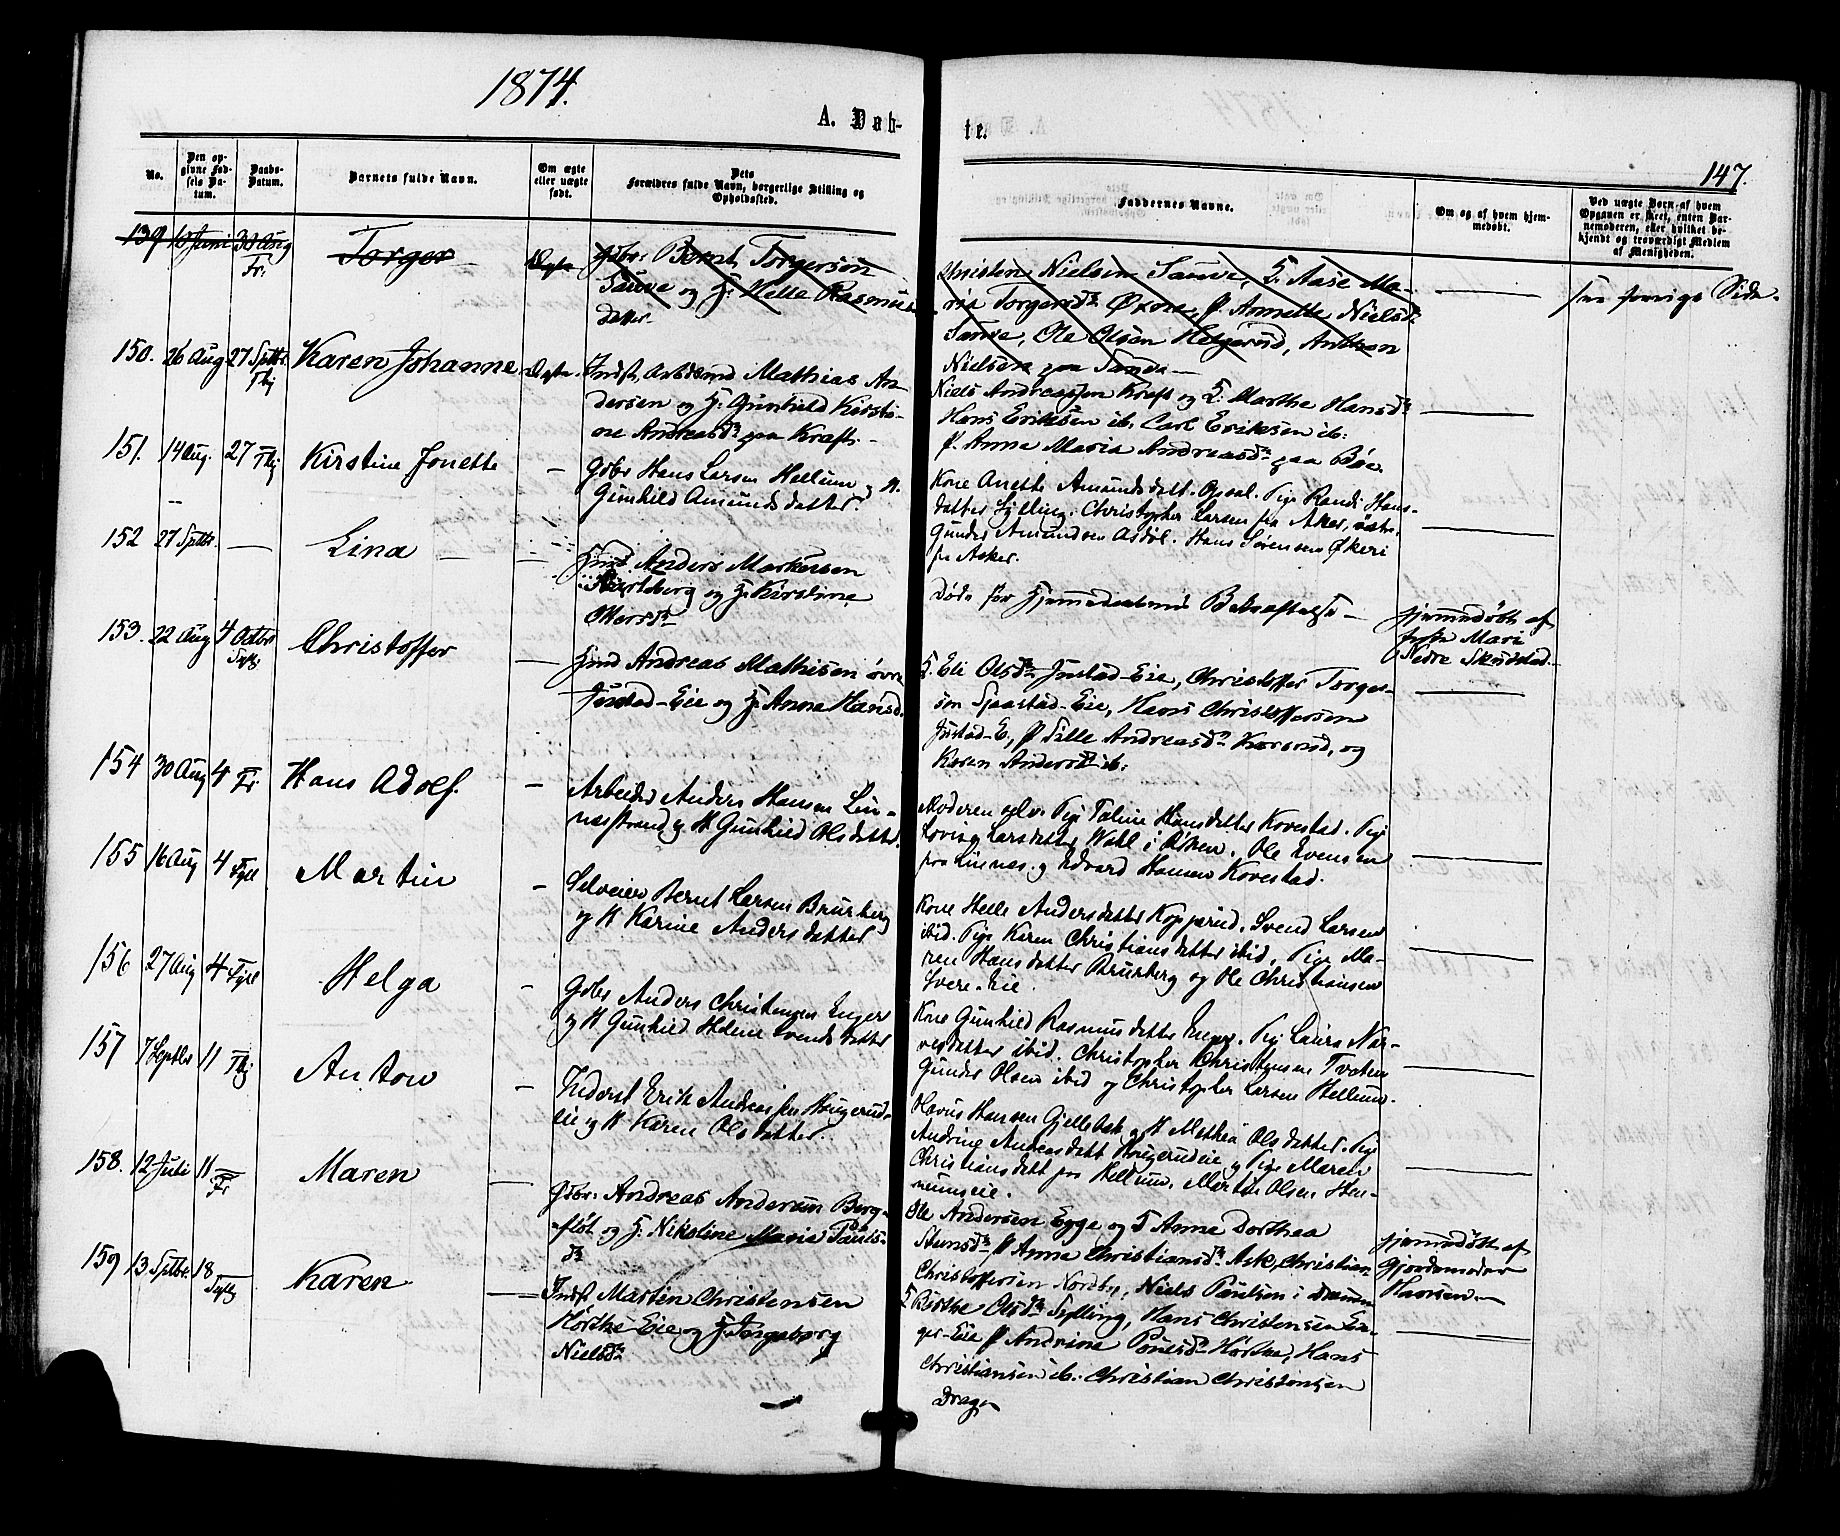 1874.
A. Døb-
te.
147.
No.
Den op-
givne Fød-
sels Da-
tum.
Daabs-
Datum.
Barnets fulde Navn.
Om ægte
eller uægte
født.
Dets
Forældres fulde Navn, borgerlige Stilling og
Opholdssted.
Faddernes Navne.
Om og af hvem hjem-
medøbt.
Ved uægte Børn af hvem
Opgaven er skeet, enten Bar-
nemoderen, eller hvilket be-
kjendt og troværdigt Medlem
af Menigheden.
139 10 Juni 30 Aug
Fr:
Torger
Ægte
Gdbr: Bernt Torgersen
Sanve og H: Helle Rasmus
datter.
Christen Nielsen Sanve, K. Aase Ma-
ria Torgersd. Øxne, P. Annette Nielsd.
Sanve, Ole Olsen Helgerud, Anton
Nielsen paa Sanve
see forrige Side.
150. 26 Aug 27 Sptbr.
Thj
Karen Johanne
Ægte.
Indst, Arbdsmd Mathias An-
dersen og H. Gunhild Kirsti-
ne Andreasd. paa Kraft.
Niels Andreassen Kraft og K. Marthe Hansd.
Hans Eriksen ib. Carl Eriksen ib:
P. Anne Maria Andreasd. paa Bøe.
151. 14 Aug. 27 Thj
Kirstine Jonette
Gdbr Hans Larsen Hellum og H.
Gunhild Amundsdatter.
Kone Anette Amundsdatt. Opsal. Pige Randi Hans-
datter Sylling. Christopher Larsen fra Asker, østre.
Gunder Amundsen Asdøl. Hans Sørensen Økeri
fra Asker.
152 27 Sptbr.
Lina
Hmd Anders Markussen
og H. Kirstine
Død før Hjemmedaabens Bekræftelse
hjemmedøbt af
Mari
Nedre Skudstad.
153. 22 Aug 4 Octbr
Sylg:
Christoffer
Hmd Andreas Mathisen øvre
Justad-Eie og H. Anna Hansd.
K. Eli Olsd. Justad-Eie, Christoffer Torger-
sen Sjaastad-Eie, Hans Christoffersen
Justad-E, P. Pille Andreasd. Kørerud, og
Karen Andersd. ib:
154 30 Aug 4 Fr:
Hans Adolf.
Arbeider Anders Hansen Lin-
næsstrand og H. Gunhild Olsdatter.
Moderen selv. Pige Taline Hansdatter Kovestad. Pige
Lovise Larsdatter Wahl i Røken. Ole Evensen
fra Linnæs og Edvard Hansen Kovestad.
155 16 Aug 4 Syll
Martin
Selveier Bernt Larsen Bruraberg
og H Karine Andersdatter
Kone Helle Andersdatter Kopperud. Svend Larsen
ibid. Pige Karen Christiansdatter ibid. Pige Ma-
ren Hansdatter Bruraberg og Ole Christiansen
Svere-Eie.
156 27 Aug 4 Syll
Helga
Gdbr Anders Christensen Enger
og H Gunhild Helene Svendsdatter
Kone Gunhild Rasmusdatter Enger. Pige Laura Nar-
vesdatter ibid. Christopher Christensen Tveten
Gunder Olsen ibid og Christopher Larsen Hellum.
157 7 Septbr 11 Thj
Anton
Inderst Erik Andreassen Haugerud-
eie og H Karen Olsdatter.
Hans Hansen Gjellebek og H Mathea Olsdatter. Pige
Andrine Andersdatt Haugerudeie og Pige Maren
Christiansdatt fra Hellum. Martin Olsen Hen-
numseie.
158. 12 Juli 11
Fr:
Maren
Gdbr: Andreas Andersen Berg-
fløt og H: Nikoline Maria Pauls-
d.
Ole Andersen Egge og K Anne Dorthea
Steensd. P Anna Christiansd. Ask, Christian
Christoffersen Nordby, Niels Paulsen i Drammen
hjemmedøbt af
Gjordemoder
Haavsen.
159 13 Sptbr. 18
Sylg
Karen
Indst Martin Christensen
Hørthe Eie og H. Ingeborg
Nielsd.
K Berthe Olsd. Sylling, Hans Christensen En-
ger-Eie P Andrine Poulsd. Hørthe, Hans
Christiansen ib. Christian Christensen
Drag.